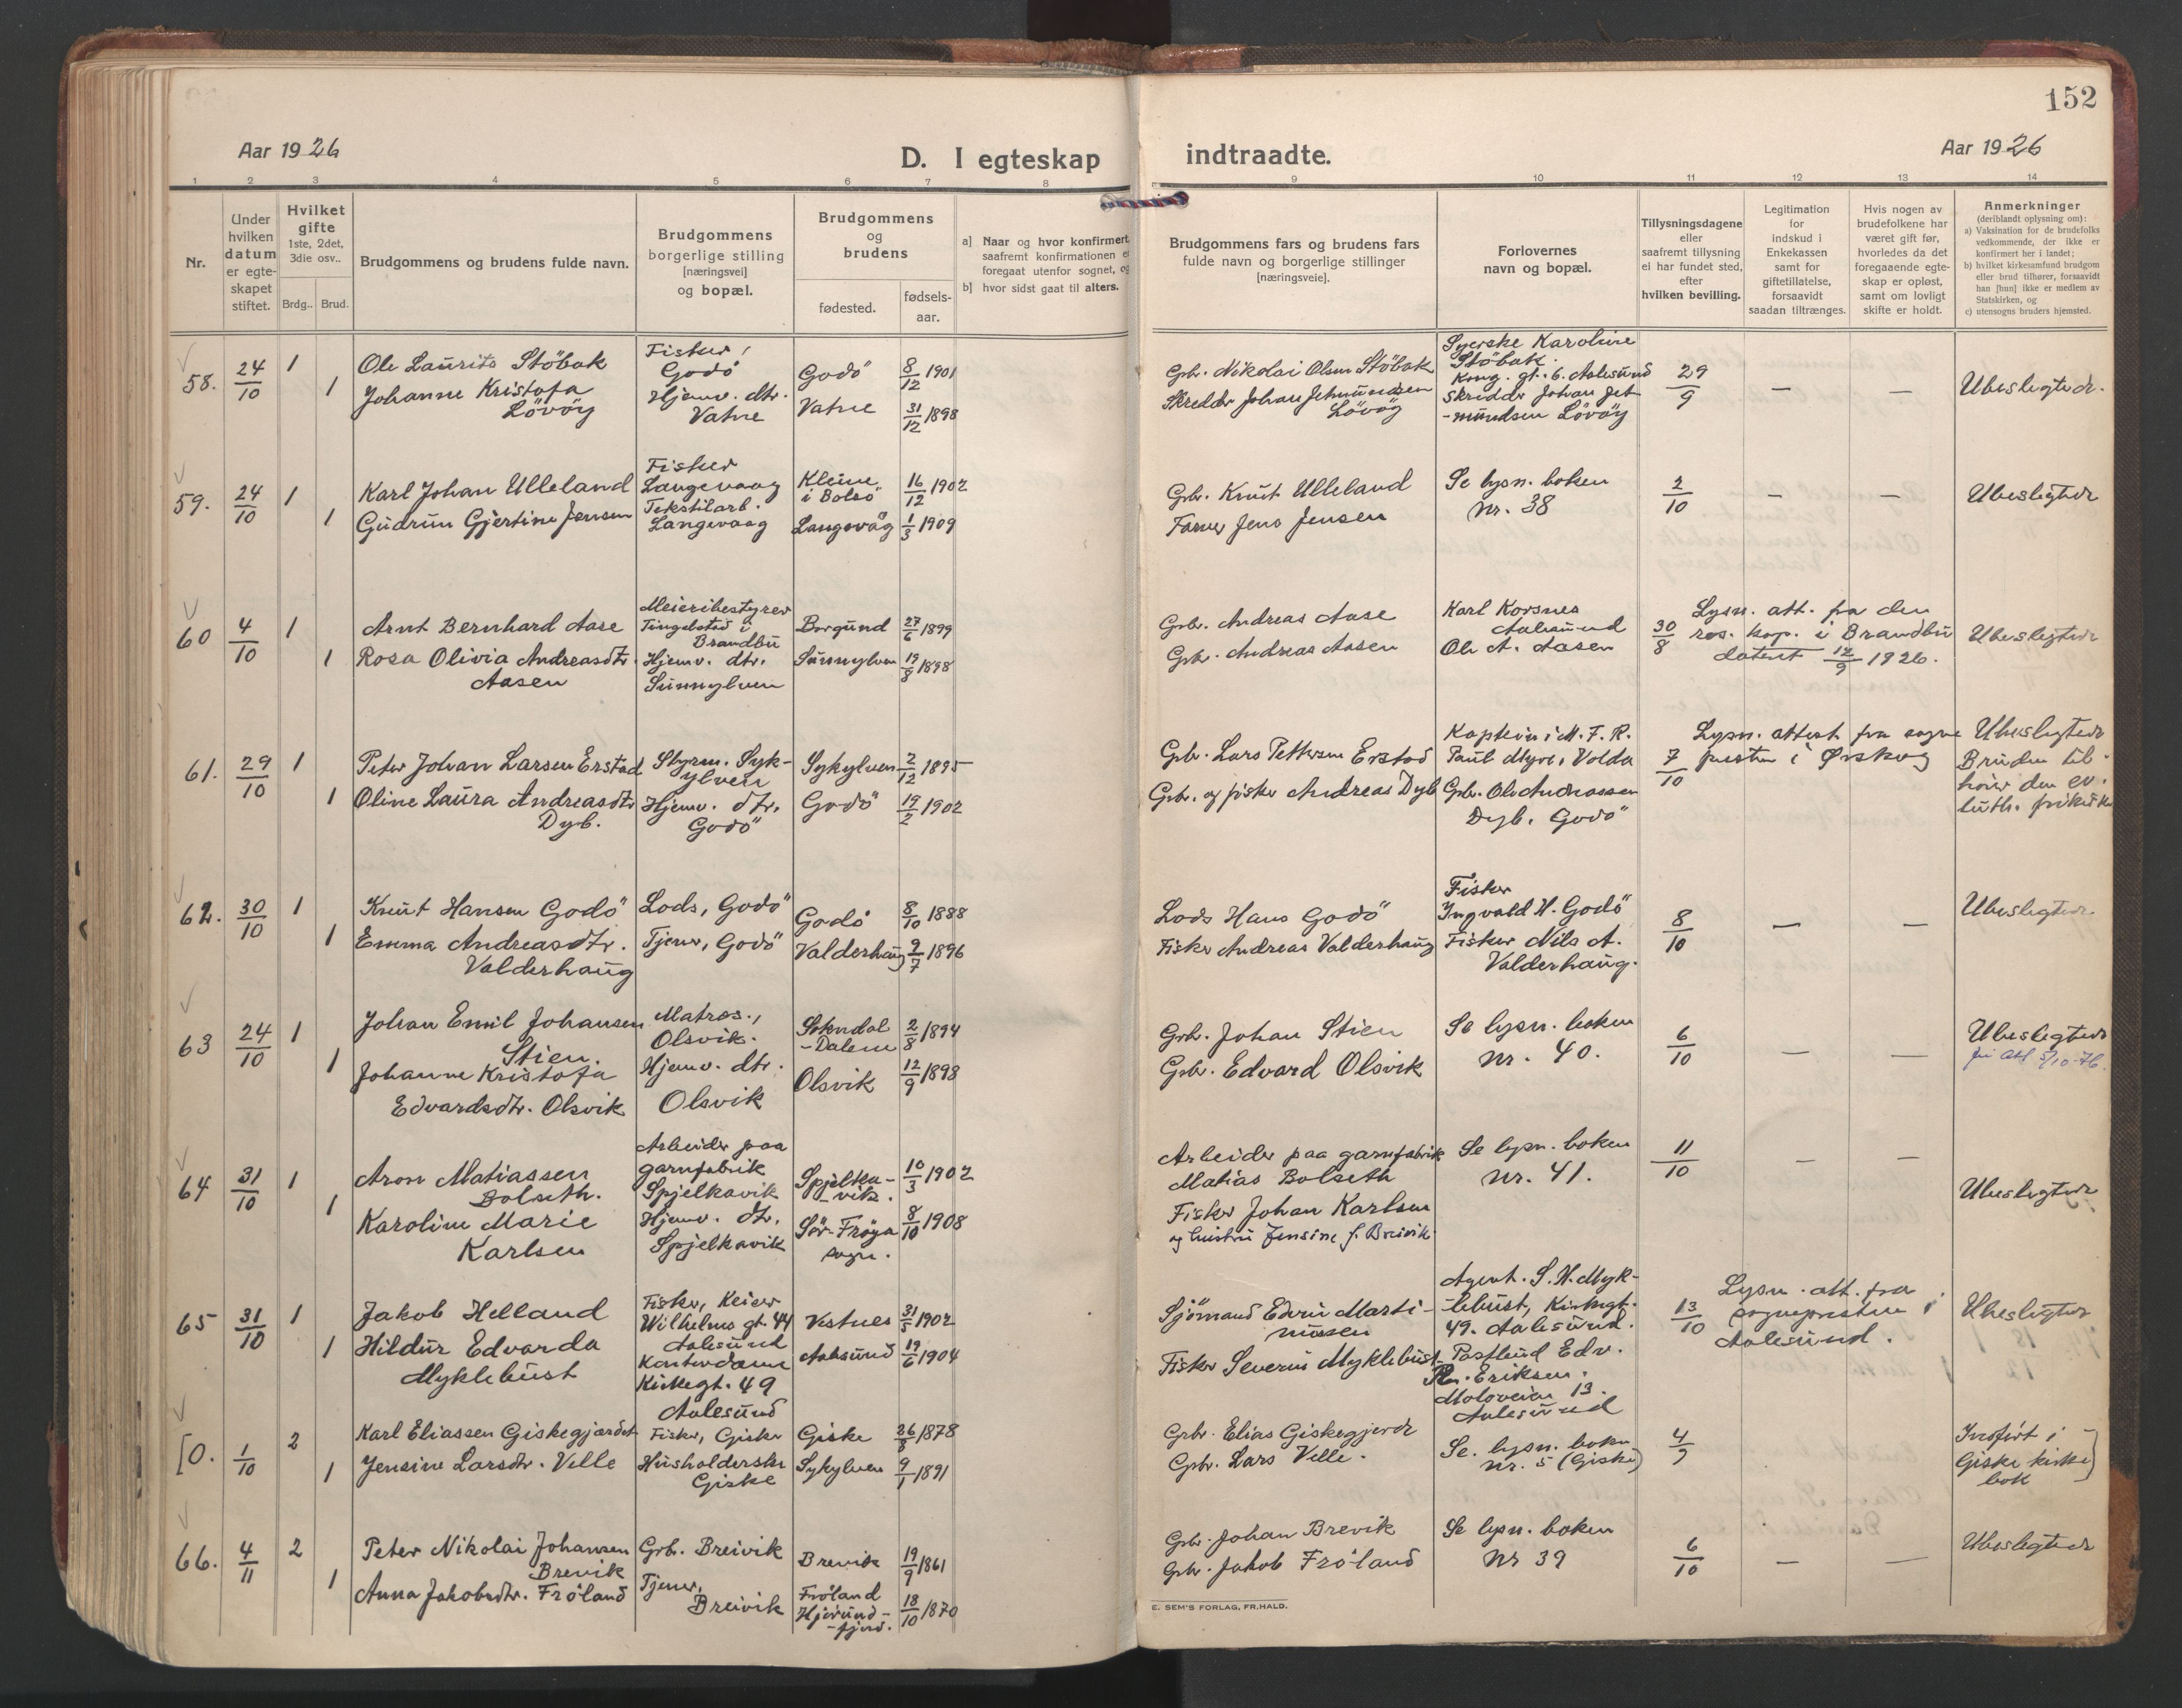 152
Aar 1926
D. I egteskap
indtraadte.
Aar 1926
1 2 3 4 5 6 7 8
9 10 11 12 13 14
Nr.
Under
hvilken
datum
er egte-
skapet
stiftet.
Hvilket
gifte
1ste, 2det,
3die osv..
Brdg.. Brud.
Brudgommens og brudens fulde navn.
Brudgommens
borgerlige stilling
[næringsvei]
og bopæl.
Brudgommens
og
brudens
fødested.
fødsels-
aar.
a] Naar og hvor konfirmert
saafremt konfirmationen er
foregaat utenfor sognet, og
b] hvor sidst gaat til alters.
Brudgommens fars og brudens fars
fulde navn og borgerlige stillinger
[næringsveie].
Forlovernes
navn og bopæl.
Tillysningsdagene
eller
saafremt tillysning
ei har fundet sted,
efter
hvilken bevilling.
Legitimation
for
indskud i
Enkekassen
samt for
giftetillatelse,
forsaavidt
saadan tiltrænges.
Hvis nogen av
brudefolkene har
været gift før,
hvorledes da det
foregaaende egte-
skap er opløst,
samt om lovligt
skifte er holdt.
Anmerkninger
(deriblandt oplysning om):
a) Vaksination for de brudefolks
vedkommende, der ikke er
konfirmert her i landet;
b) hvilket kirkesamfund brudgom
eller brud tilhører, forsaavidt
han [hun] ikke er medlem av
Statskirken, og
c) utensogns bruders hjemsted.
58.
24/10
1
1
Ole Laurits Stöbak
Johanne Kristofa
Lövöy
Fisker,
Godö
Hjemv. dtr.
Vatne
Godö
Vatne
8/12 1901
31/12 1898
Grb. Nikolai Olsen Stöbak
Skredder Johan Jetmundsen
Lövöy
Syerske Karoline
Stöbak.
Kong. gt. 6. Aalesund
Skredder Johan Jet-
-mundsen Lövöy
29/9
—
—
Ubeslegtede.
59.
24/10
1
1
Karl Johan Ulleland
Gudrun Gjertine Jensen
Fisker
Langevaag
Tekstilarb.
Langevaag
Kleive
i Bolsö
Langevåg
16/12 1902
1/3 1909
Grb. Knut Ulleland
Farver Jens Jensen
Se lysn. boken
nr. 38
2/10
—
—
Ubeslegtede
60
4/10
1
1
Arnt Bernhard Aase
Rosa Olivia Andreasdtr.
Aasen
Meieribestyrer
Tingelstad i
Brandbu
Hjemv. dtr.
Sunnylven
Borgund
Sunnylven
27/6 1899
19/8 1898
Grb. Andreas Aase
Grb. Andreas Aasen
Karl Korsnes
Aalesund
Ole A. Aasen
30/8
Lysn. att. fra den
res. kap. i Brandbu
datert 12/9 1926.
Ubeslegtede
61.
29/10
1
1
Peter Johan Larsen Erstad
Oline Laura Andreasdtr
Dyb.
Styrm. Syk-
ylven
Hjemv. dtr.
Godö
Sykylven
Godö
2/12 1895
19/2 1902
Grb. Lars Pettersen Erstad
Grb. og fisker Andreas Dyb
Kaptein i M. F. R.
Paul Myre, Volda
Grb. Ole Andreassen
Dyb, Godö
7/10
Lysn. attest fra sogne
presten i Ørskog
Ubeslegtede
Bruden til-
hører den ev.
luth. frikirke
62.
30/10
1
1
Knut Hansen Godö
Emma Andreasdtr.
Valderhaug
Lods, Godö
Tjener, Godö
Godö
Valderhaug
8/10 1888
9/7 1896
Lods Hans Godö
Fisker Andreas Valderhaug
Fisker
Ingvald H. Godö
Fisker Nils A.
Valderhaug.
8/10
—
—
Ubeslegtede.
63
24/10
1
1
Johan Emil Johansen
Stien.
Johanne Kristofa
Edvardsdtr. Olsvik
Matros.,
Olsvik.
Hjemv. dtr.
Olsvik
Sokndal
-Dalene
Olsvik
2/8 1894
12/9 1898
Grb. Johan Stien
Grb. Edvard Olsvik
Se lysn. boken
nr. 40.
6/10
—
—
Ubeslegtede
64
31/10
1
1
Aron Matiassen
Bolseth.
Karoline Marie
Karlsen
Arbeider paa
garnfabrik
Spjelkavik
Hjemv. dtr.
Spjelkavik
Spjelka-
-vik.
Sör-Fröya
sogn.
10/3 1902
8/10 1908
Arbeider paa garnfabrik
Matias Bolseth
Fisker Johan Karlsen
og hustru Jensine f. Breivik.
Se lysn. boken
nr. 41.
11/10
—
—
Ubeslegtede
65
31/10
1
1
Jakob Helland
Hildur Edvarda
Myklebust
Fisker, Keiser
Wilhelms gt. 44
Aalesund
Kontordame
Kirkegt. 49
Aalesund
Vestnes
Aalesund
31/5 1902
19/6 1904
Sjömand Edvin Marti-
nussen
Fisker Severin Myklebust
Agent. S. H. Myk-
-lebust, Kirkegt.
49. Aalesund.
Postbud Edv.
Eriksen.
Moloveien 13.
Aalesund
13/10
Lysn. att. fra
sognepresten i
Aalesund.
Ubeslegtede
[0.
1/10
2
1
Karl Eliassen Giskegjærdet
Jensine Larsdtr. Velle
Fisker, Giske
Husholderske
Giske
Giske
Sykylven
26/8 1878
9/1 1891
Grb. Elias Giskegjerde
Grb. Lars Velle.
Se. lysn. boken
nr. 5 (Giske)
4/9
Innført i
Giske kirke
bok]
66.
4/11
2
1
Peter Nikolai Johansen
Brevik
Anna Jakobsdtr. Fröland
Grb. Breivik
Tjener,
Breivik
Brevik
Fröland
Hjörund-
-fjord.
19/9 1861
18/10 1870
Grb. Johan Brevik
Grb. Jakob Fröland
Se lysn. boken
Nr 39
6/10
—
—
Ubeslegtede
E. SEM'S FORLAG, FR.HALD.